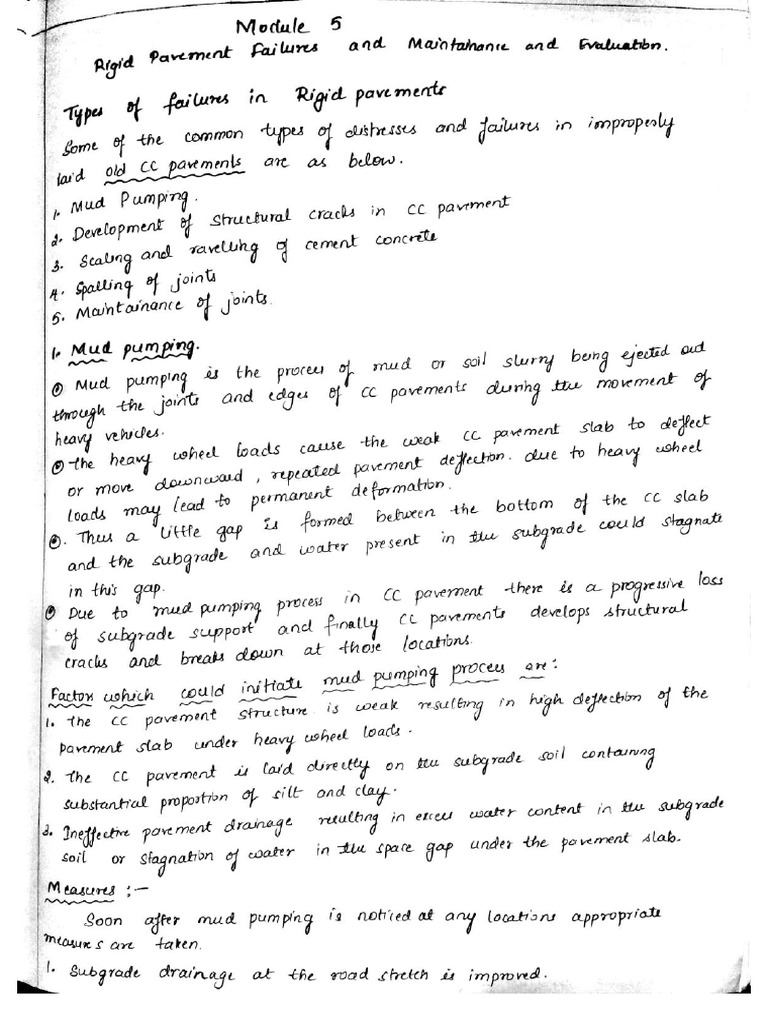 Module 5
Rigid Pavement Failures and Maintainance and Evaluation.
Types of failures in Rigid pavements
Some of the common types of distresses and failures in improperly
laid old CC pavements are as below.
1. Mud Pumping.
2. Development of structural cracks in CC pavement
3. Scaling and ravelling of cement concrete
4. Spalling of joints
5. Maintainance of joints.
1. Mud pumping.
Mud pumping is the process of mud or soil slurry being ejected out
through the joints and edges of CC pavements during the movement of
heavy vehicles.
The heavy wheel loads cause the weak CC pavement slab to deflect
or move downward, repeated pavement deflection. due to heavy wheel
loads may lead to permanent deformation.
Thus a little gap is formed between the bottom of the CC slab
and the subgrade and water present in the subgrade could stagnate
in this gap.
Due to mud pumping process in CC pavement there is a progressive loss
of subgrade support and finally CC pavements develops structural
cracks and breaks down at those locations.
Factor which could initiate mud pumping process are:
1. The CC pavement structure is weak resulting in high deflection of the
pavement slab under heavy wheel loads.
2. The CC pavement is laid directly on the subgrade soil containing
substantial proportion of silt and clay.
3. Ineffective pavement drainage resulting in excess water content in the subgrade
soil or stagnation of water in the space gap under the pavement slab.
Measures :-
Soon after mud pumping is noticed at any locations appropriate
measures are taken.
1. Subgrade drainage at the road stretch is improved.